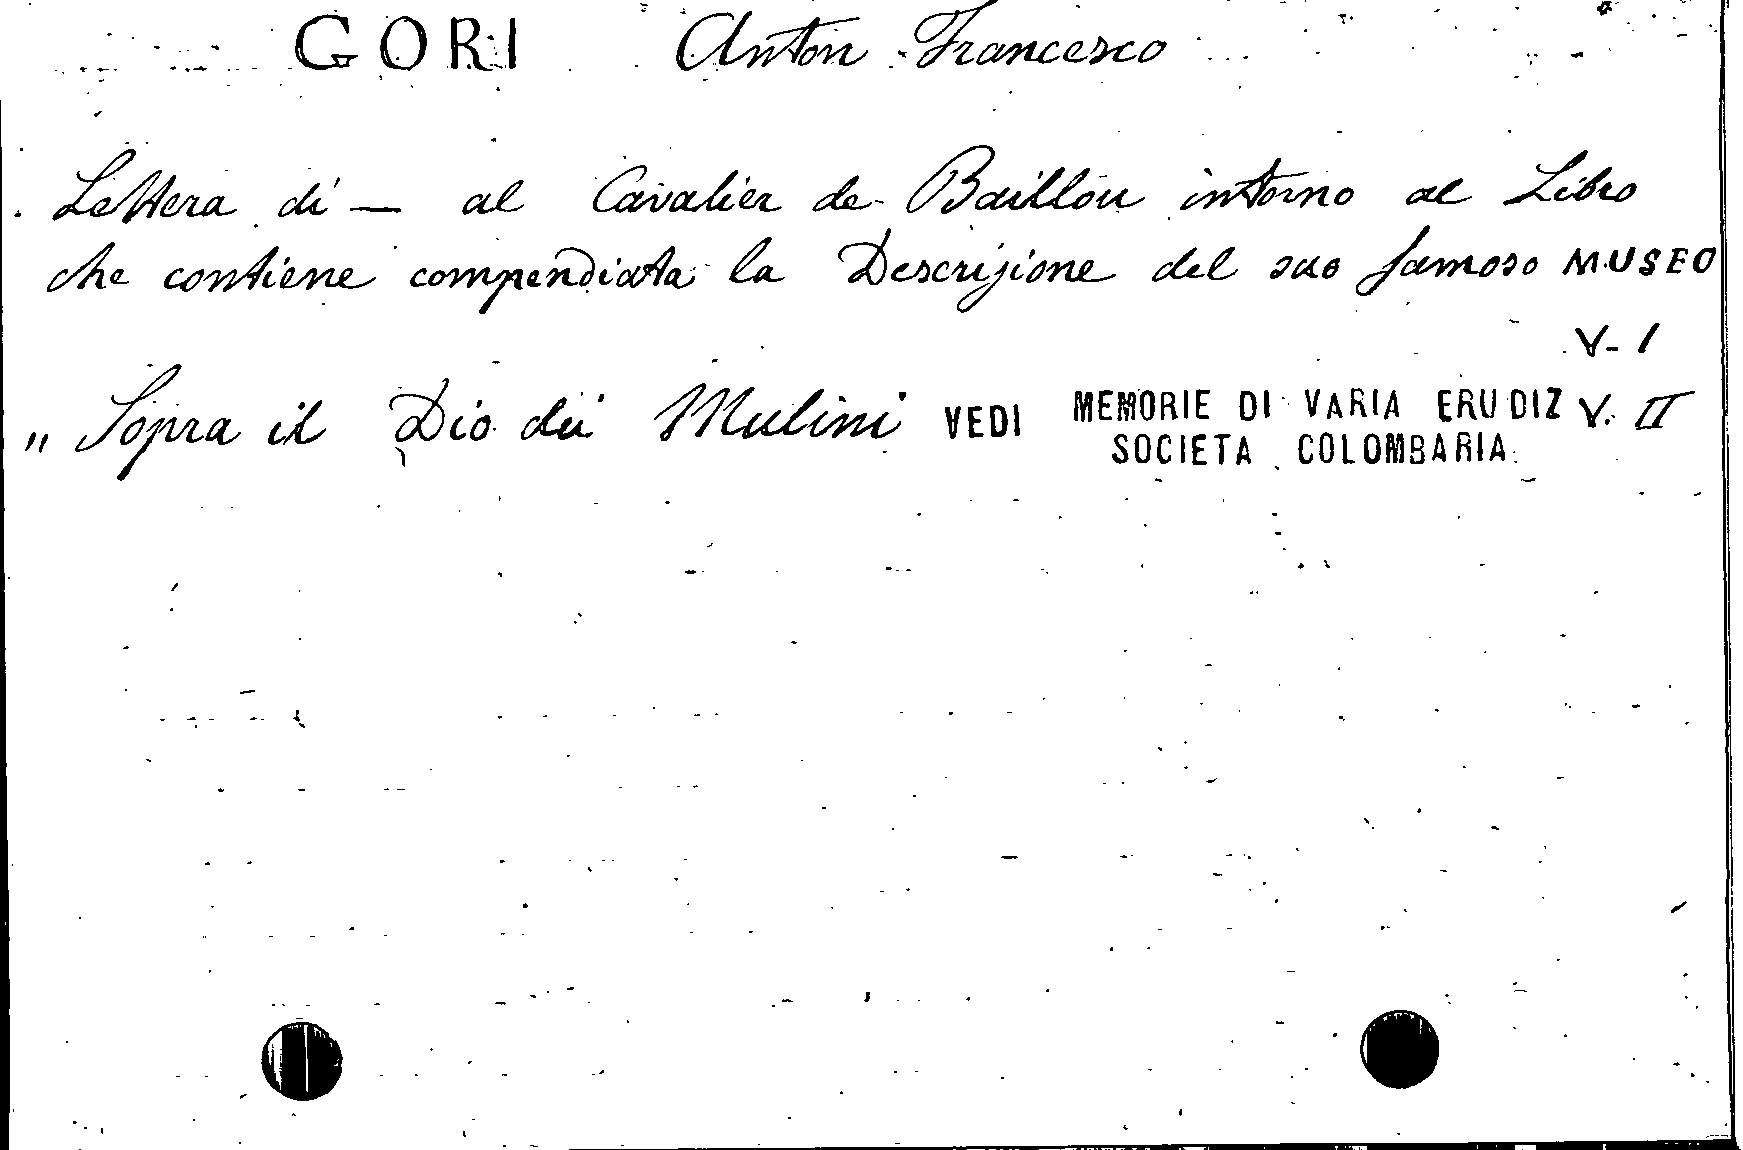 GORI Anton Francesco
Lettera di — al Cavalier de Baillou intorno al Libro
che contiene compendiata la Descrizione del suo famoso MUSEO
V- I
„ Sopra il Dio dei Mulini VEDI MEMORIE DI VARIA ERUDIZ V. II
SOCIETA COLOMBARIA